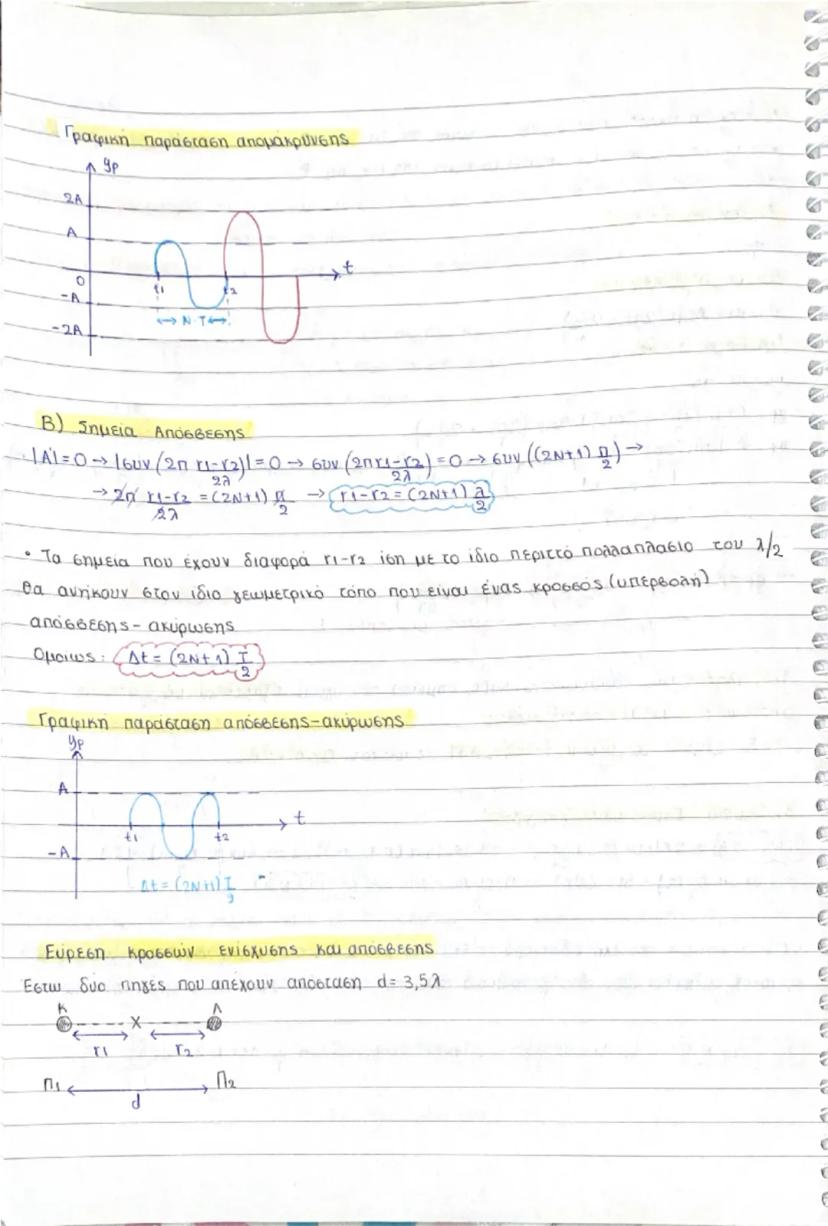 Γραφική παράσταση απομάκρυνσης
yp
2A
A
0
t1
t2
t
-A
↔ N·T ↔
-2A
Β) Σημεία Απόσβεσης
|A|=0 → |συν(2π r1-r2/2λ)|=0 → συν(2π r1-r2/2λ)=0 → συν((2N+1) π/2) →
→ 2π r1-r2/2λ = (2N+1) π/2 → r1-r2 = (2N+1) λ/2
• Τα σημεία που έχουν διαφορά r1-r2 ίση με το ίδιο περιττό πολλαπλάσιο του λ/2
θα ανήκουν στον ίδιο γεωμετρικό τόπο που είναι ένας κροσσός (υπερβολή)
απόσβεσης - ακύρωσης
Ομοιως: Δt = (2N+1) T/2
Γραφική παράσταση απόσβεσης-ακύρωσης
yp
A
t1
t2
t
-A
Δt = (2N+1) T/2
Εύρεση κροσσών ενίσχυσης και απόσβεσης
Έστω δύο πηγές που απέχουν απόσταση d= 3,5λ
K
X
Λ
r1
r2
Π1
Π2
d